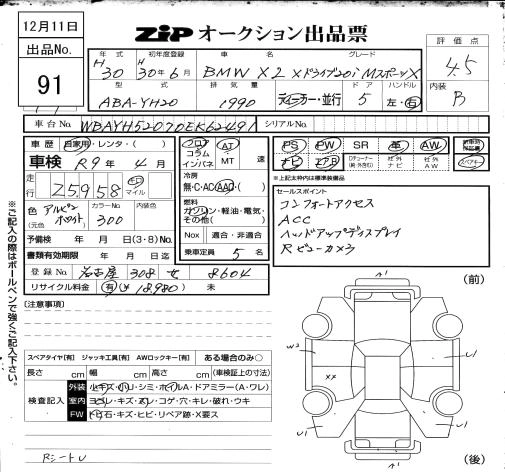 12月11日
ZIP オークション出品票
出品No.
91
年式 初年度登録 車名 グレード
H30 H30年6月 BMW X2 xドライブ20i MスポーツX
評価点
4.5
型式 排気量 ドア ハンドル
ABA-YH20 1990 ディーラー・並行 5 左・右
内装
B
車台No. WBAYH52070EK62491 シリアルNo.
車歴 自家用・レンタ・( )
車検 R9年 4月
走行 25958 キロ マイル
フロア コラム インパネ
AT MT 速
冷房
無・C・AC・AAC・( )
色(元色) アルピンホワイト カラーNo. 300 内装色
燃料
ガソリン・軽油・電気・その他( )
予備検 年 月 日(3・8)No.
Nox 適合・非適合
書類有効期限 年 月 日迄
乗車定員 5 名
登録No. 名古屋 308 せ 8604
リサイクル料金 有(¥18,980) 未
PS PW SR 革 AW
ナビ エアB 社外ナビ 社外AW
スペアキー
*上記太枠内は標準装備品
セールスポイント
コンフォートアクセス
ACC
ヘッドアップディスプレイ
Rビューカメラ
(注意事項)
※ご記入の際はボールペンで強くご記入下さい。
スペアタイヤ[有] ジャッキ工具[有] AWロックキー[有] ある場合のみ○
長さ cm 幅 cm 高さ cm (車検証上の寸法)
検査記入
外装 小キズ・小U・シミ・ホイルA・ドアミラー(A・ワレ)
室内 ヨゴレ・キズ・スレ・コゲ・穴・キレ・破れ・ウキ
FW トビ石・キズ・ヒビ・リペア跡・X要ス
RシートU
(前)
A1
W2
U1
XX
U1
A1
(後)